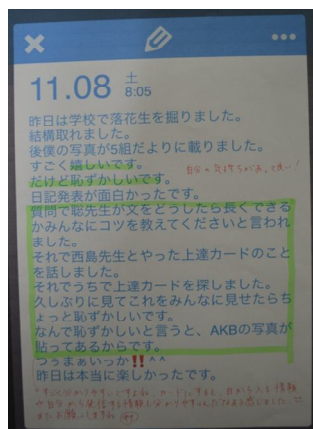 11.08 土 8:05
昨日は学校で落花生を掘りました。
結構取れました。
後僕の写真が5組だよりに載りました。
すごく嬉しいです。
だけど恥ずかしいです。
自分の気持ちがあって良い!
日記発表が面白かったです。
質問で聡先生が文をどうしたら長くできる
かみんなにコツを教えてくださいと言われ
ました。
それで西島先生とやった上達カードのこと
を話しました。
それでうちで上達カードを探しました。
久しぶりに見てこれをみんなに見せたらち
ょっと恥ずかしいです。
なんで恥ずかしいと言うと、AKBの写真が
貼ってあるからです。
つぅまぁいっか‼️^ ^
昨日は本当に楽しかったです。